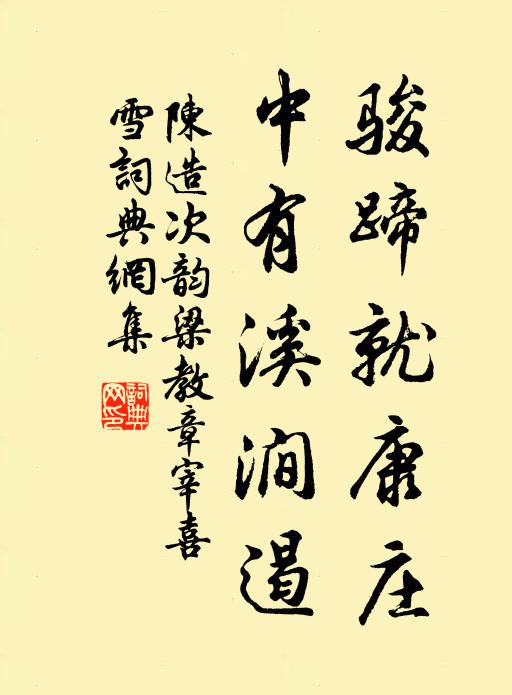 骏蹄就康庄
中有溪涧遏
陳造次韵梁教章宰喜
雪詞典網集
詞典网印